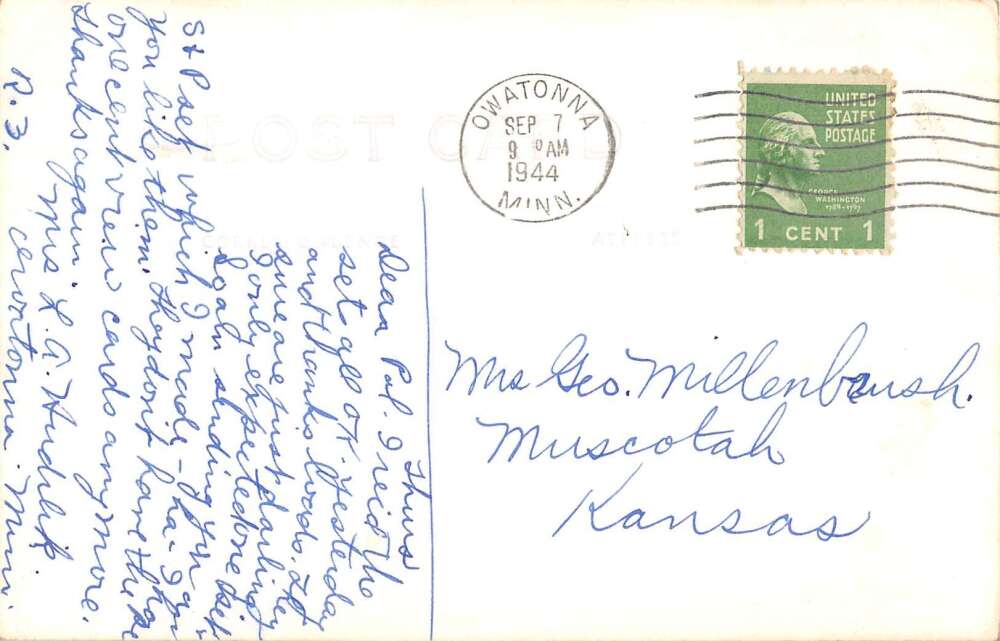 POST CARD
CORRESPONDENCE
ADDRESS
OWATONNA
SEP 7
9 AM
1944
MINN.
UNITED
STATES
POSTAGE
GEORGE
WASHINGTON
1789-1797
1 CENT 1
Mrs Geo. Millenbruch.
Muscotah
Kansas
Thurs
Dear Pal. I rec'd the
set all OK. yesterday
and thanks loads. They
sure are just darling
I only expected one set
So am sending you a
S & P set which I made - ha - I hope
you like them. They don't have these
one cent view cards anymore.
Thanks again.
Mrs. L. A.
R. 3, Owatonna. Minn.